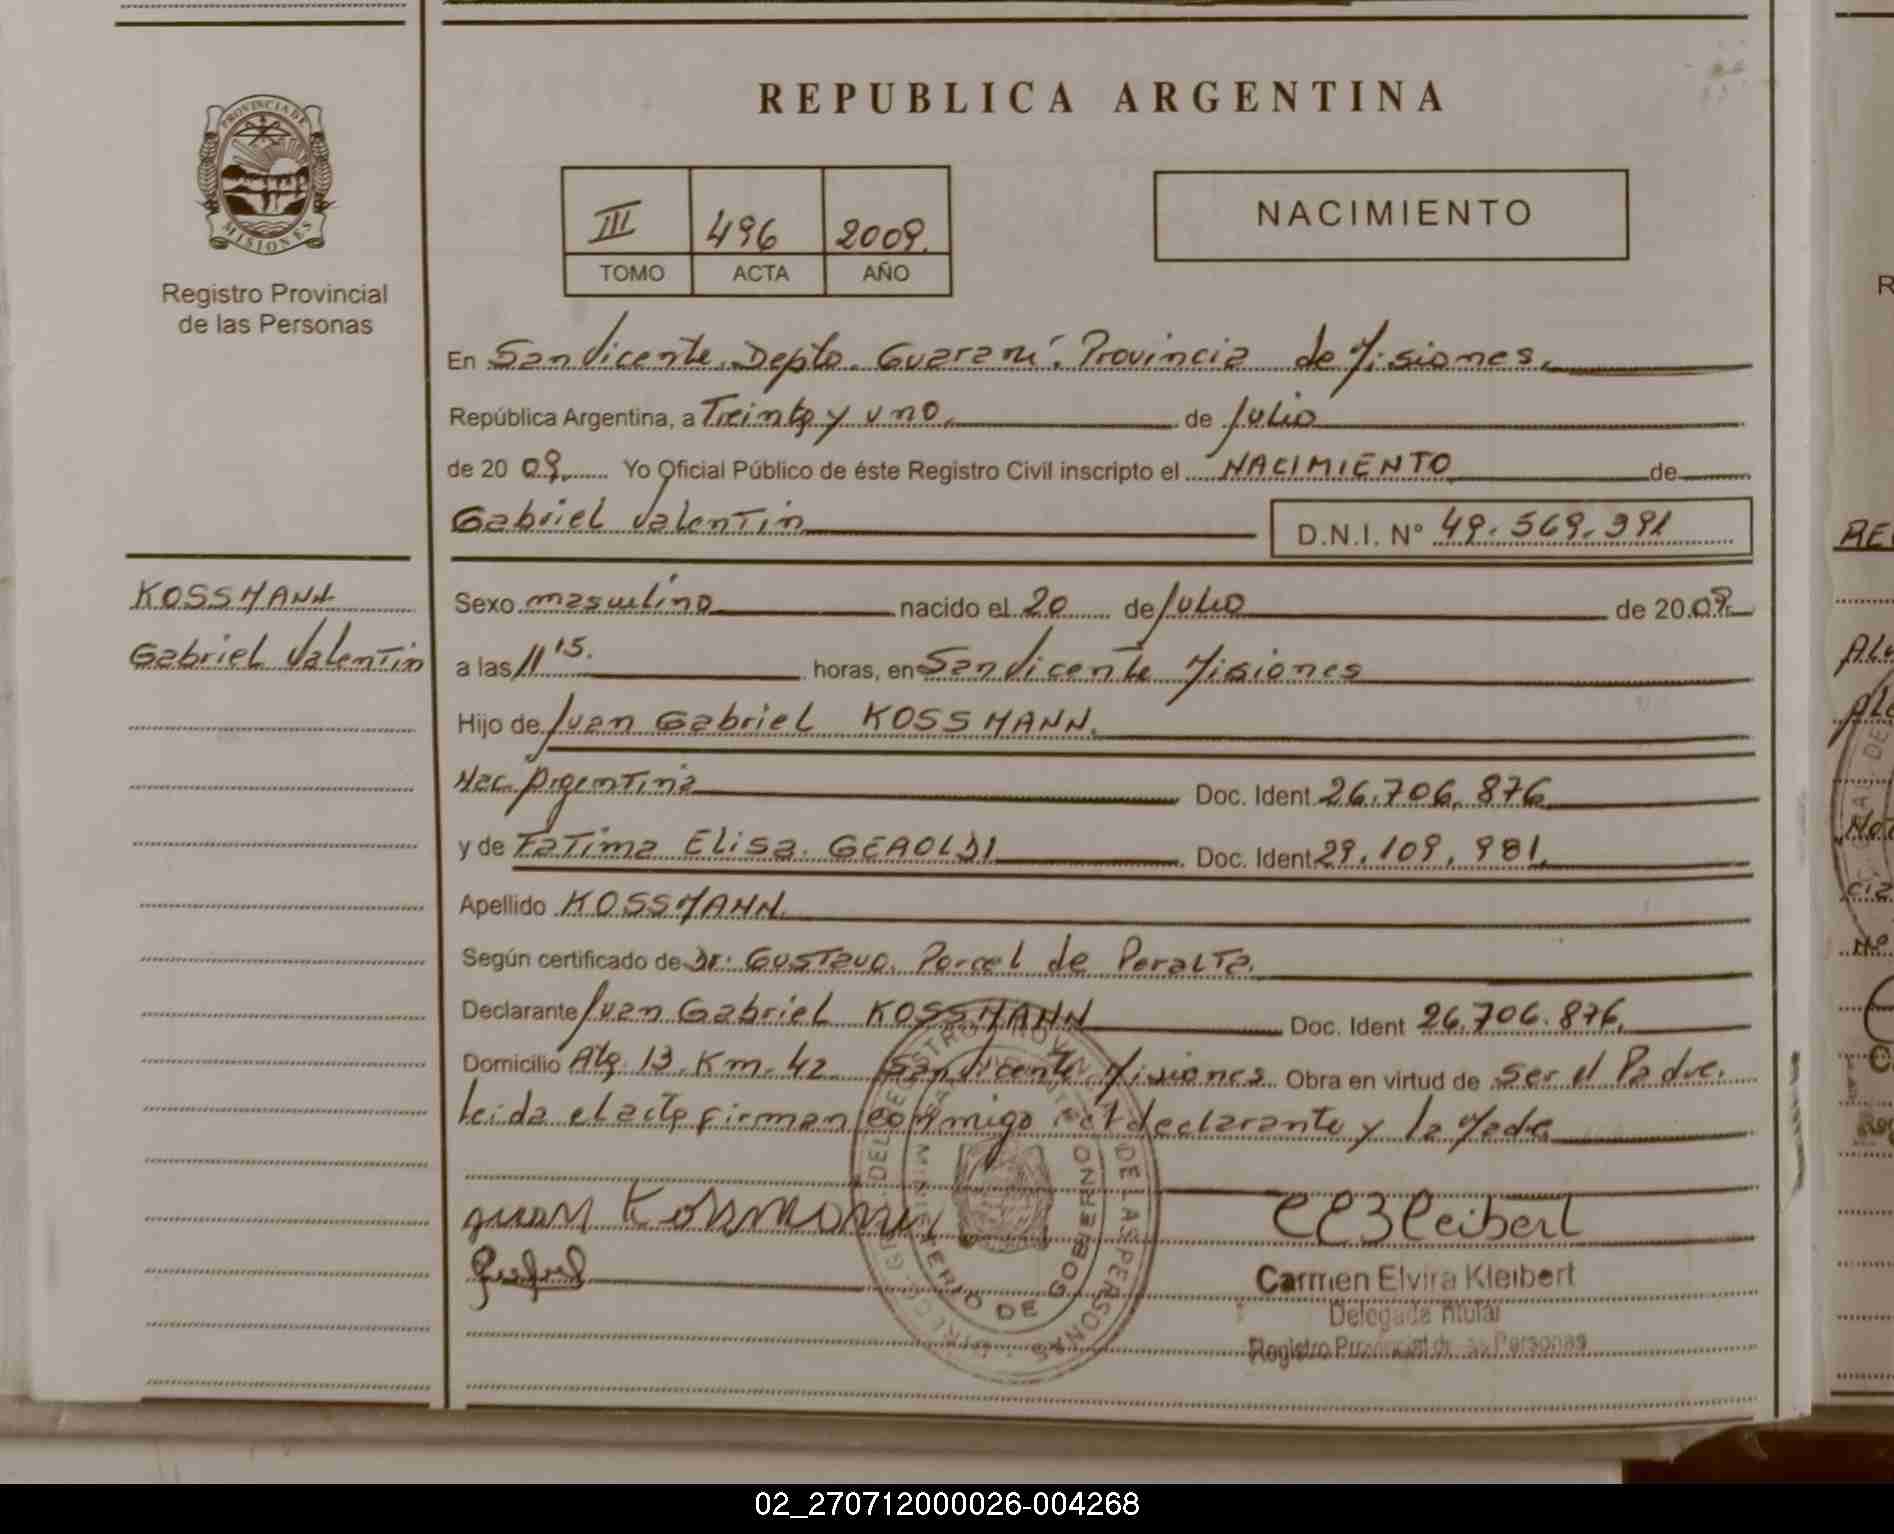 REPUBLICA ARGENTINA
PROVINCIA DE
MISIONES
Registro Provincial
de las Personas
III 496 2009.
TOMO ACTA AÑO
NACIMIENTO
En San Vicente. Depto. Guaraní. Provincia de Misiones.
República Argentina, a Treinta y uno. de Julio
de 20 09. Yo Oficial Público de éste Registro Civil inscripto el NACIMIENTO de
Gabriel Valentin D.N.I. N° 49.569.391
KOSSMANN
Gabriel Valentin
Sexo masculino nacido el 20 de Julio de 20 09.
a las 11 15. horas, en San Vicente Misiones
Hijo de Juan Gabriel KOSSMANN.
Nac. Argentina Doc. Ident 26.706.876
y de Fatima Elisa. GEROLDI Doc. Ident 29.109.981.
Apellido KOSSMANN.
Según certificado de Dr. Gustavo. Porcel de Peralta.
Declarante Juan Gabriel KOSSMANN Doc. Ident 26.706.876.
Domicilio Alq. 13. Km. 42 San Vicente Misiones Obra en virtud de ser el Padre.
leida el acta firman conmigo el declarante y la Madre
juan Kossmann
CEKleibert
Carmen Elvira Kleibert
Delegada Titular
Registro Provincial de las Personas
MINISTERIO DE GOBIERNO
DE LAS PERSONAS
02_270712000026-004268